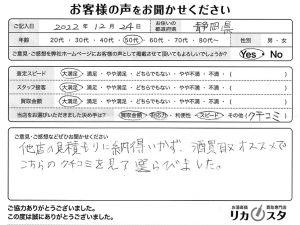 お客様の声をお聞かせください
ご記入日 2022年 12月 24日 お住いの都道府県 静岡県
年齢 20代・30代・40代・50代・60代・70代・80代〜 性別 男・女
ご意見・ご感想を弊社ホームページにお客様の声として掲載させて頂いてもよろしいでしょうか? Yes・No
査定スピード 大満足・満足・やや満足・どちらでもない・やや不満・不満・( )
スタッフ接客 大満足・満足・やや満足・どちらでもない・やや不満・不満・( )
買取金額 大満足・満足・やや満足・どちらでもない・やや不満・不満・( )
当店をお選びいただきました決め手は? 買取金額・お応対・利便性・スピード・その他(クチコミ)
ご意見・ご感想などぜひお聞かせください。
他店の見積もりに納得いかず、酒買取オススメで
こちらのクチコミを見て選らびました。
ご協力ありがとうございました。
この度は誠にありがとうございました。
お酒高価買取専門店
リカスタ